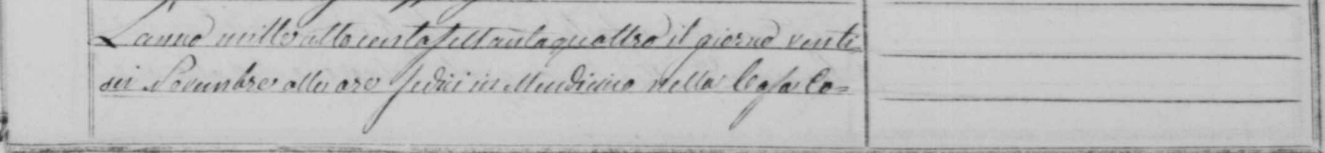 L'anno mille ottocentosettantaquattro il giorno venti
sei Novembre alle ore sedici in Mendicino nella Casa Co=